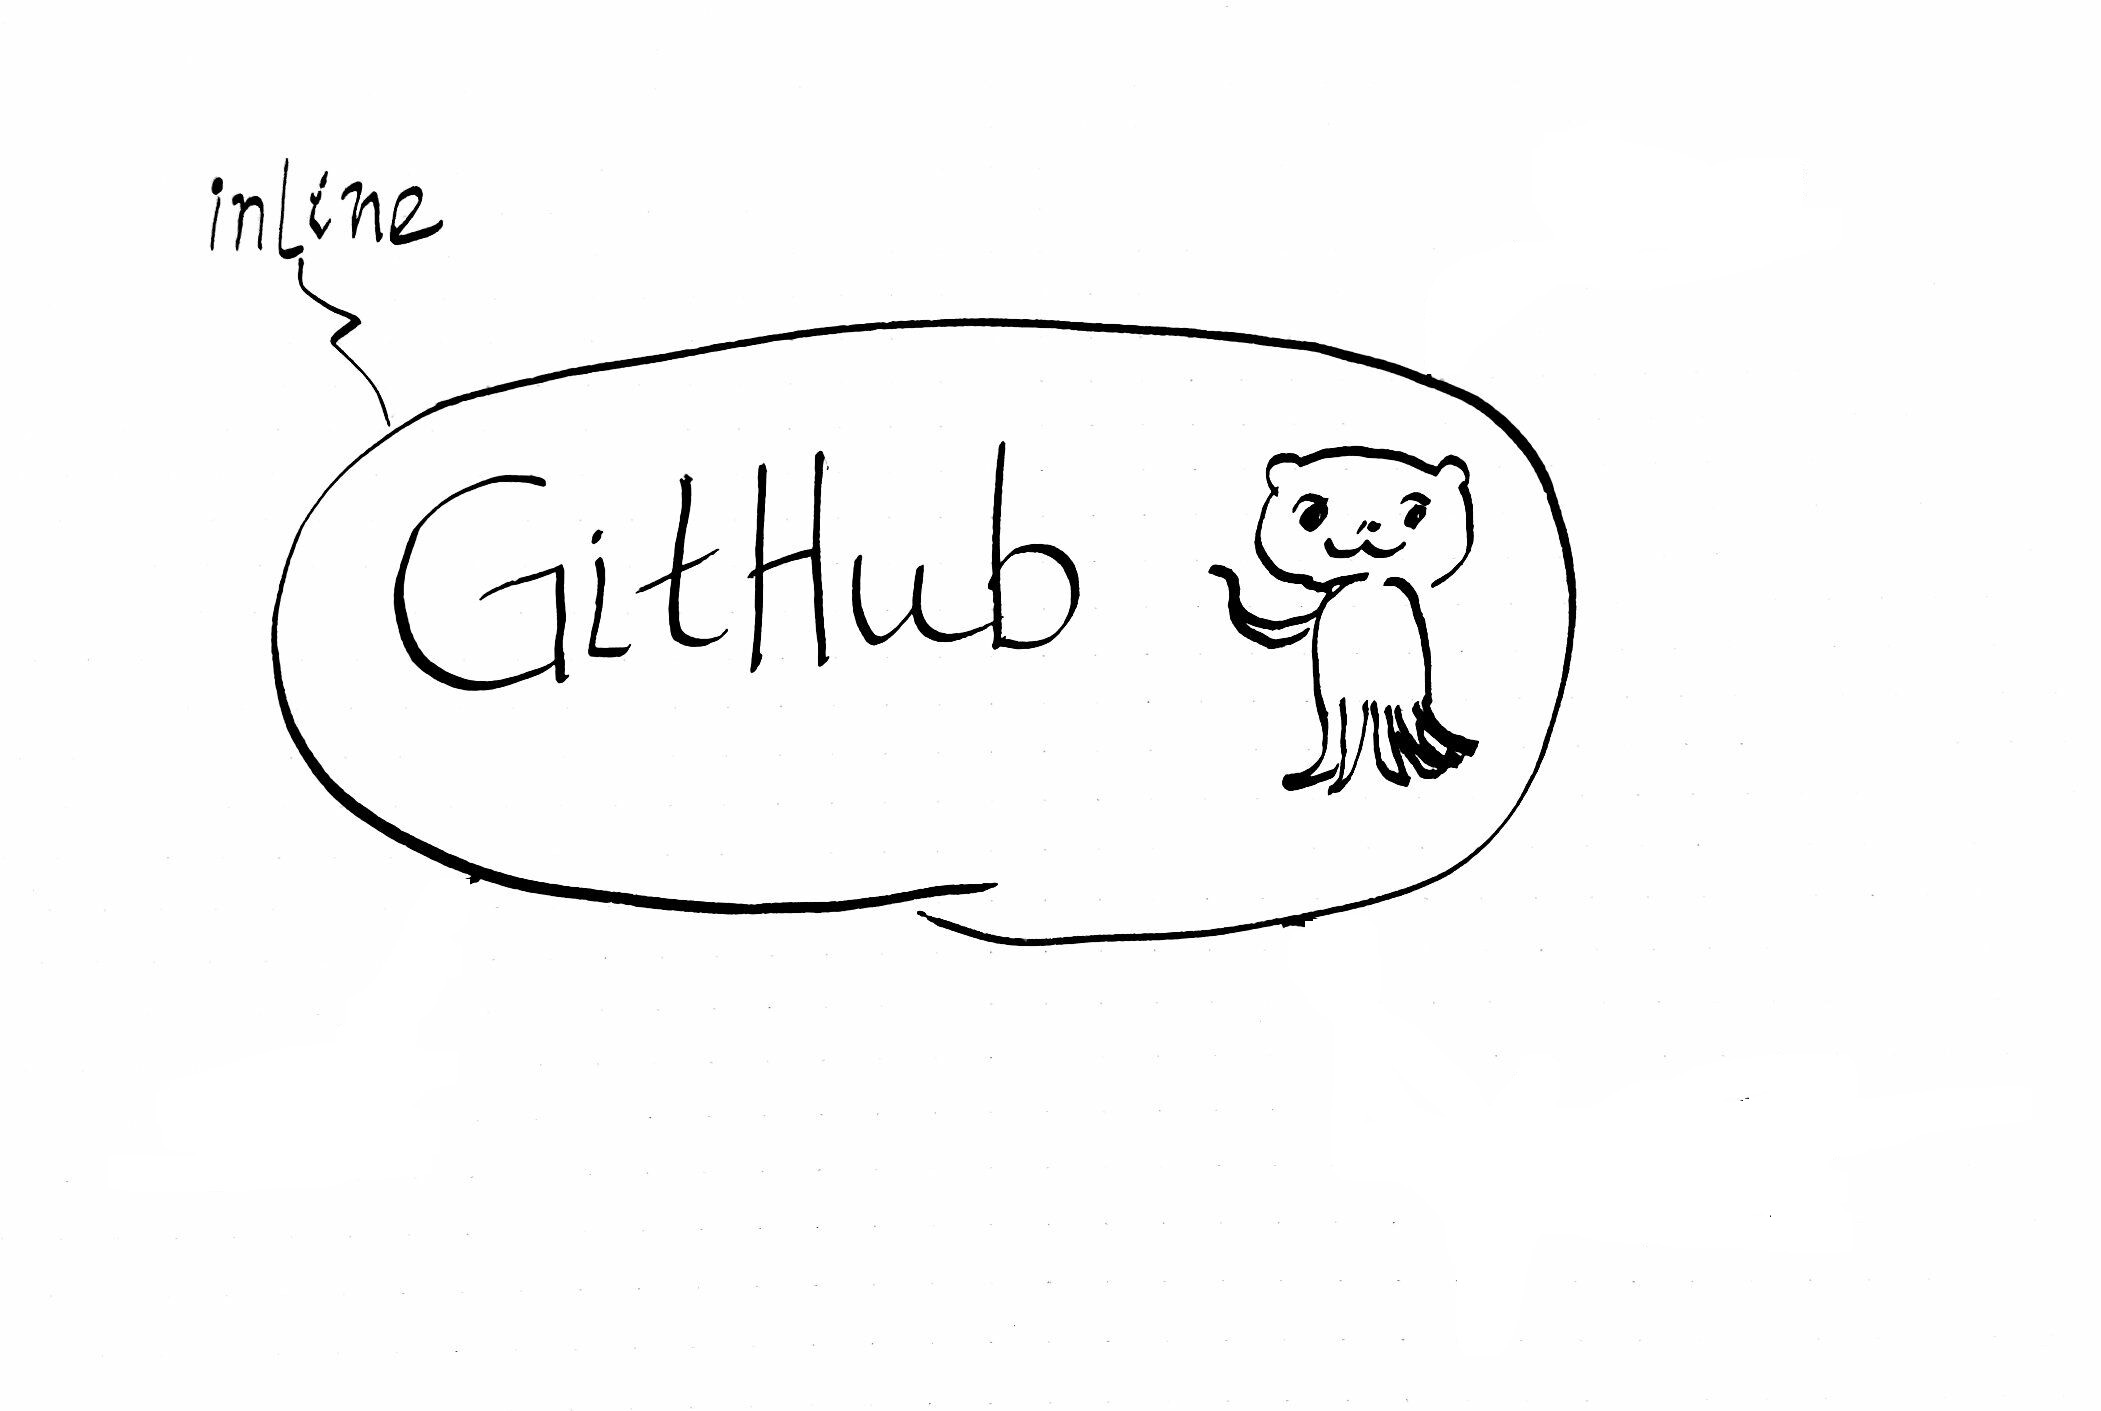 inline
GitHub